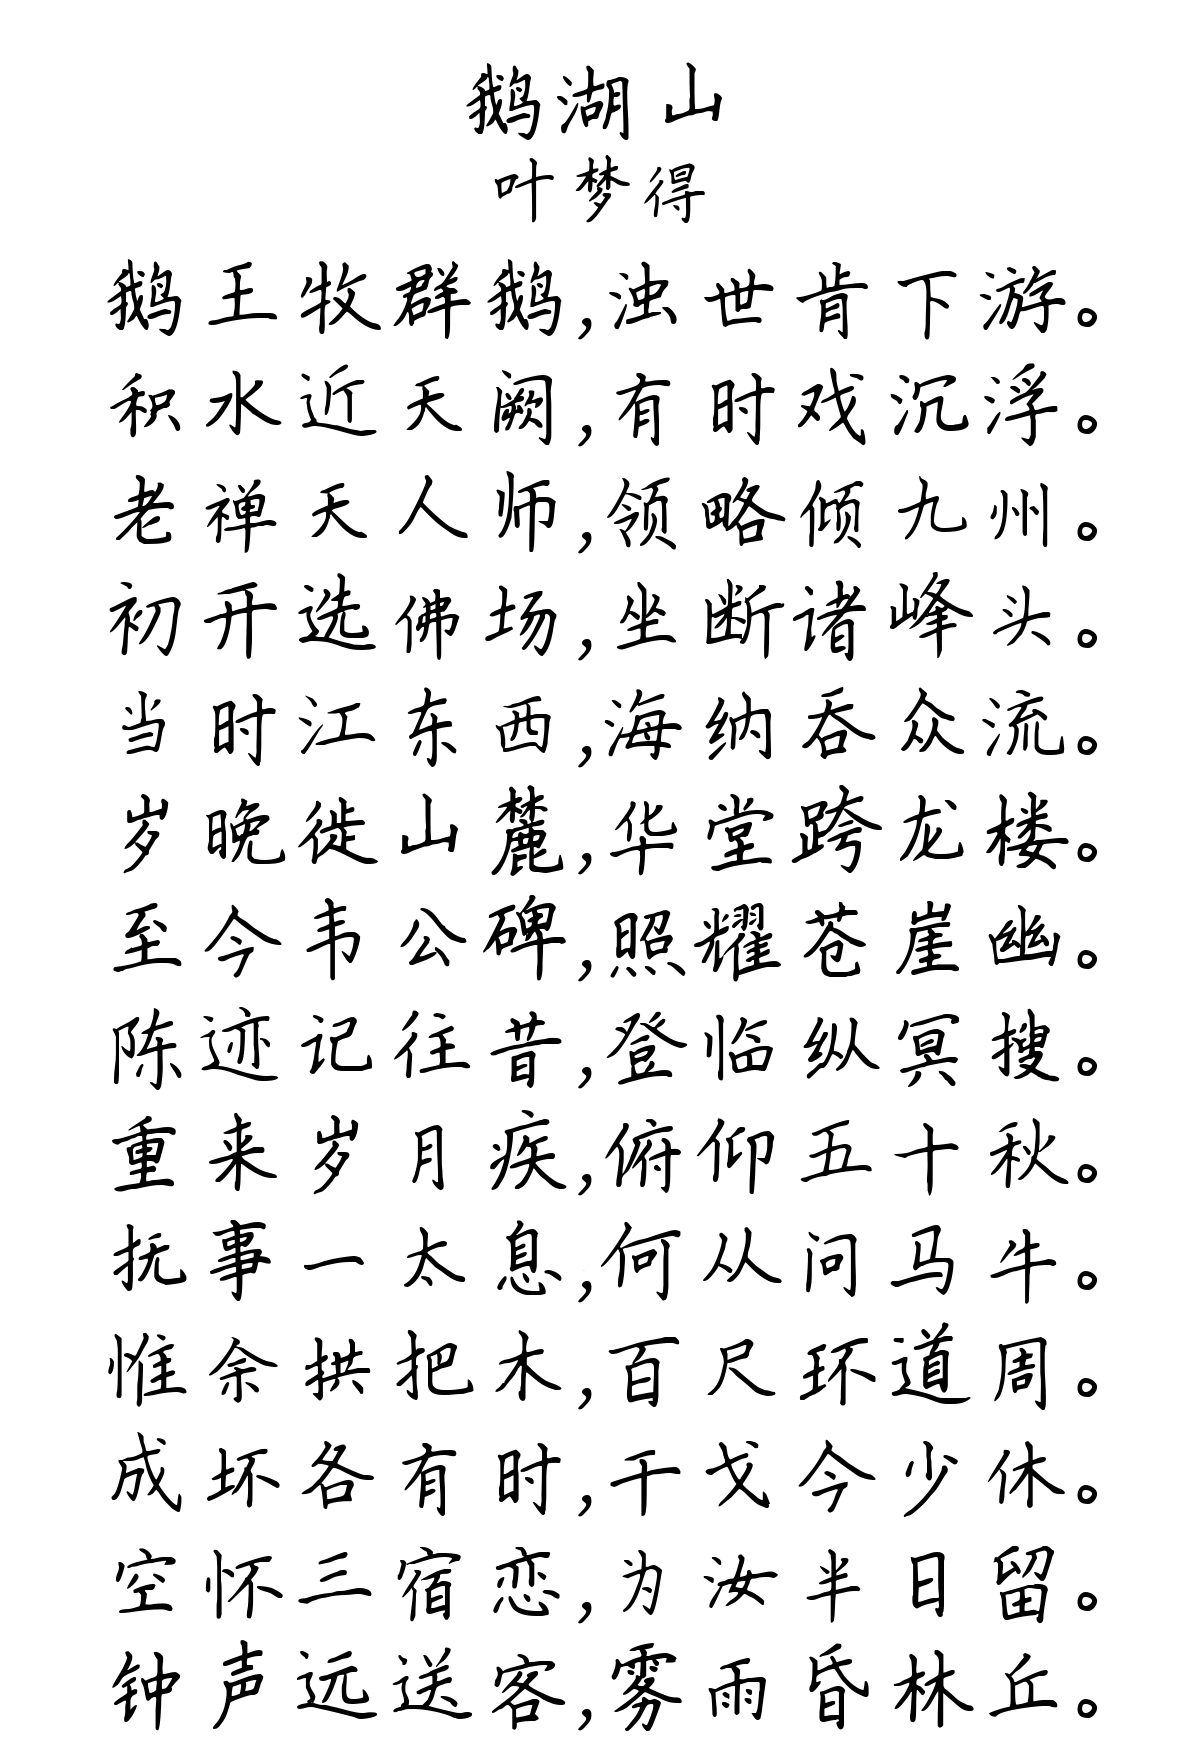 鹅湖山
叶梦得
鹅王牧群鹅,浊世肯下游。
积水近天阙,有时戏沉浮。
老禅天人师,领略倾九州。
初开选佛场,坐断诸峰头。
当时江东西,海纳吞众流。
岁晚徙山麓,华堂跨龙楼。
至今韦公碑,照耀苍崖幽。
陈迹记往昔,登临纵冥搜。
重来岁月疾,俯仰五十秋。
抚事一太息,何从问马牛。
惟余拱把木,百尺环道周。
成坏各有时,干戈今少休。
空怀三宿恋,为汝半日留。
钟声远送客,雾雨昏林丘。